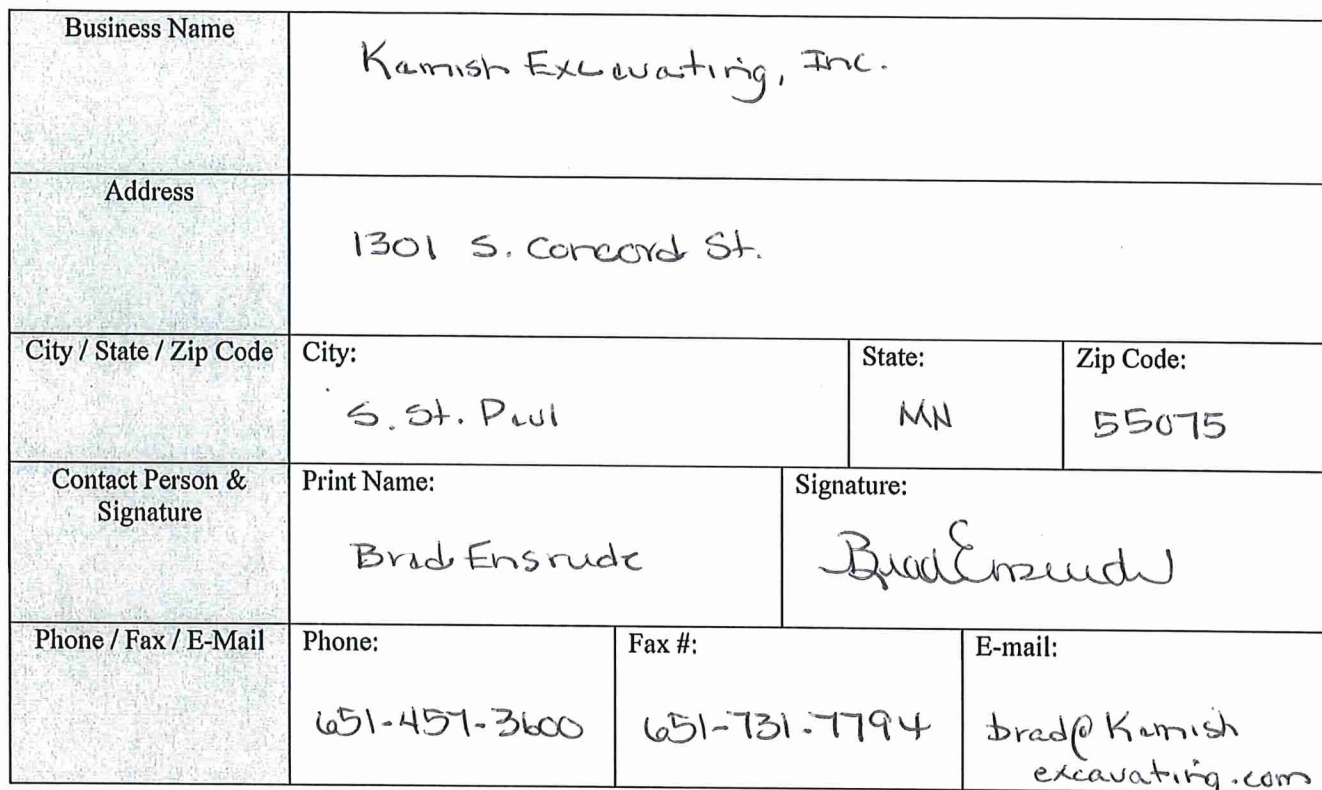 Business Name
Kamish Excavating, Inc.
Address
1301 S. Concord St.
City / State / Zip Code
City:
S. St. Paul
State:
MN
Zip Code:
55075
Contact Person &
Signature
Print Name:
Brad Ensrude
Signature:
Brad Ensrude
Phone / Fax / E-Mail
Phone:
651-457-3600
Fax #:
651-731-7794
E-mail:
brad@Kamish
excavating.com